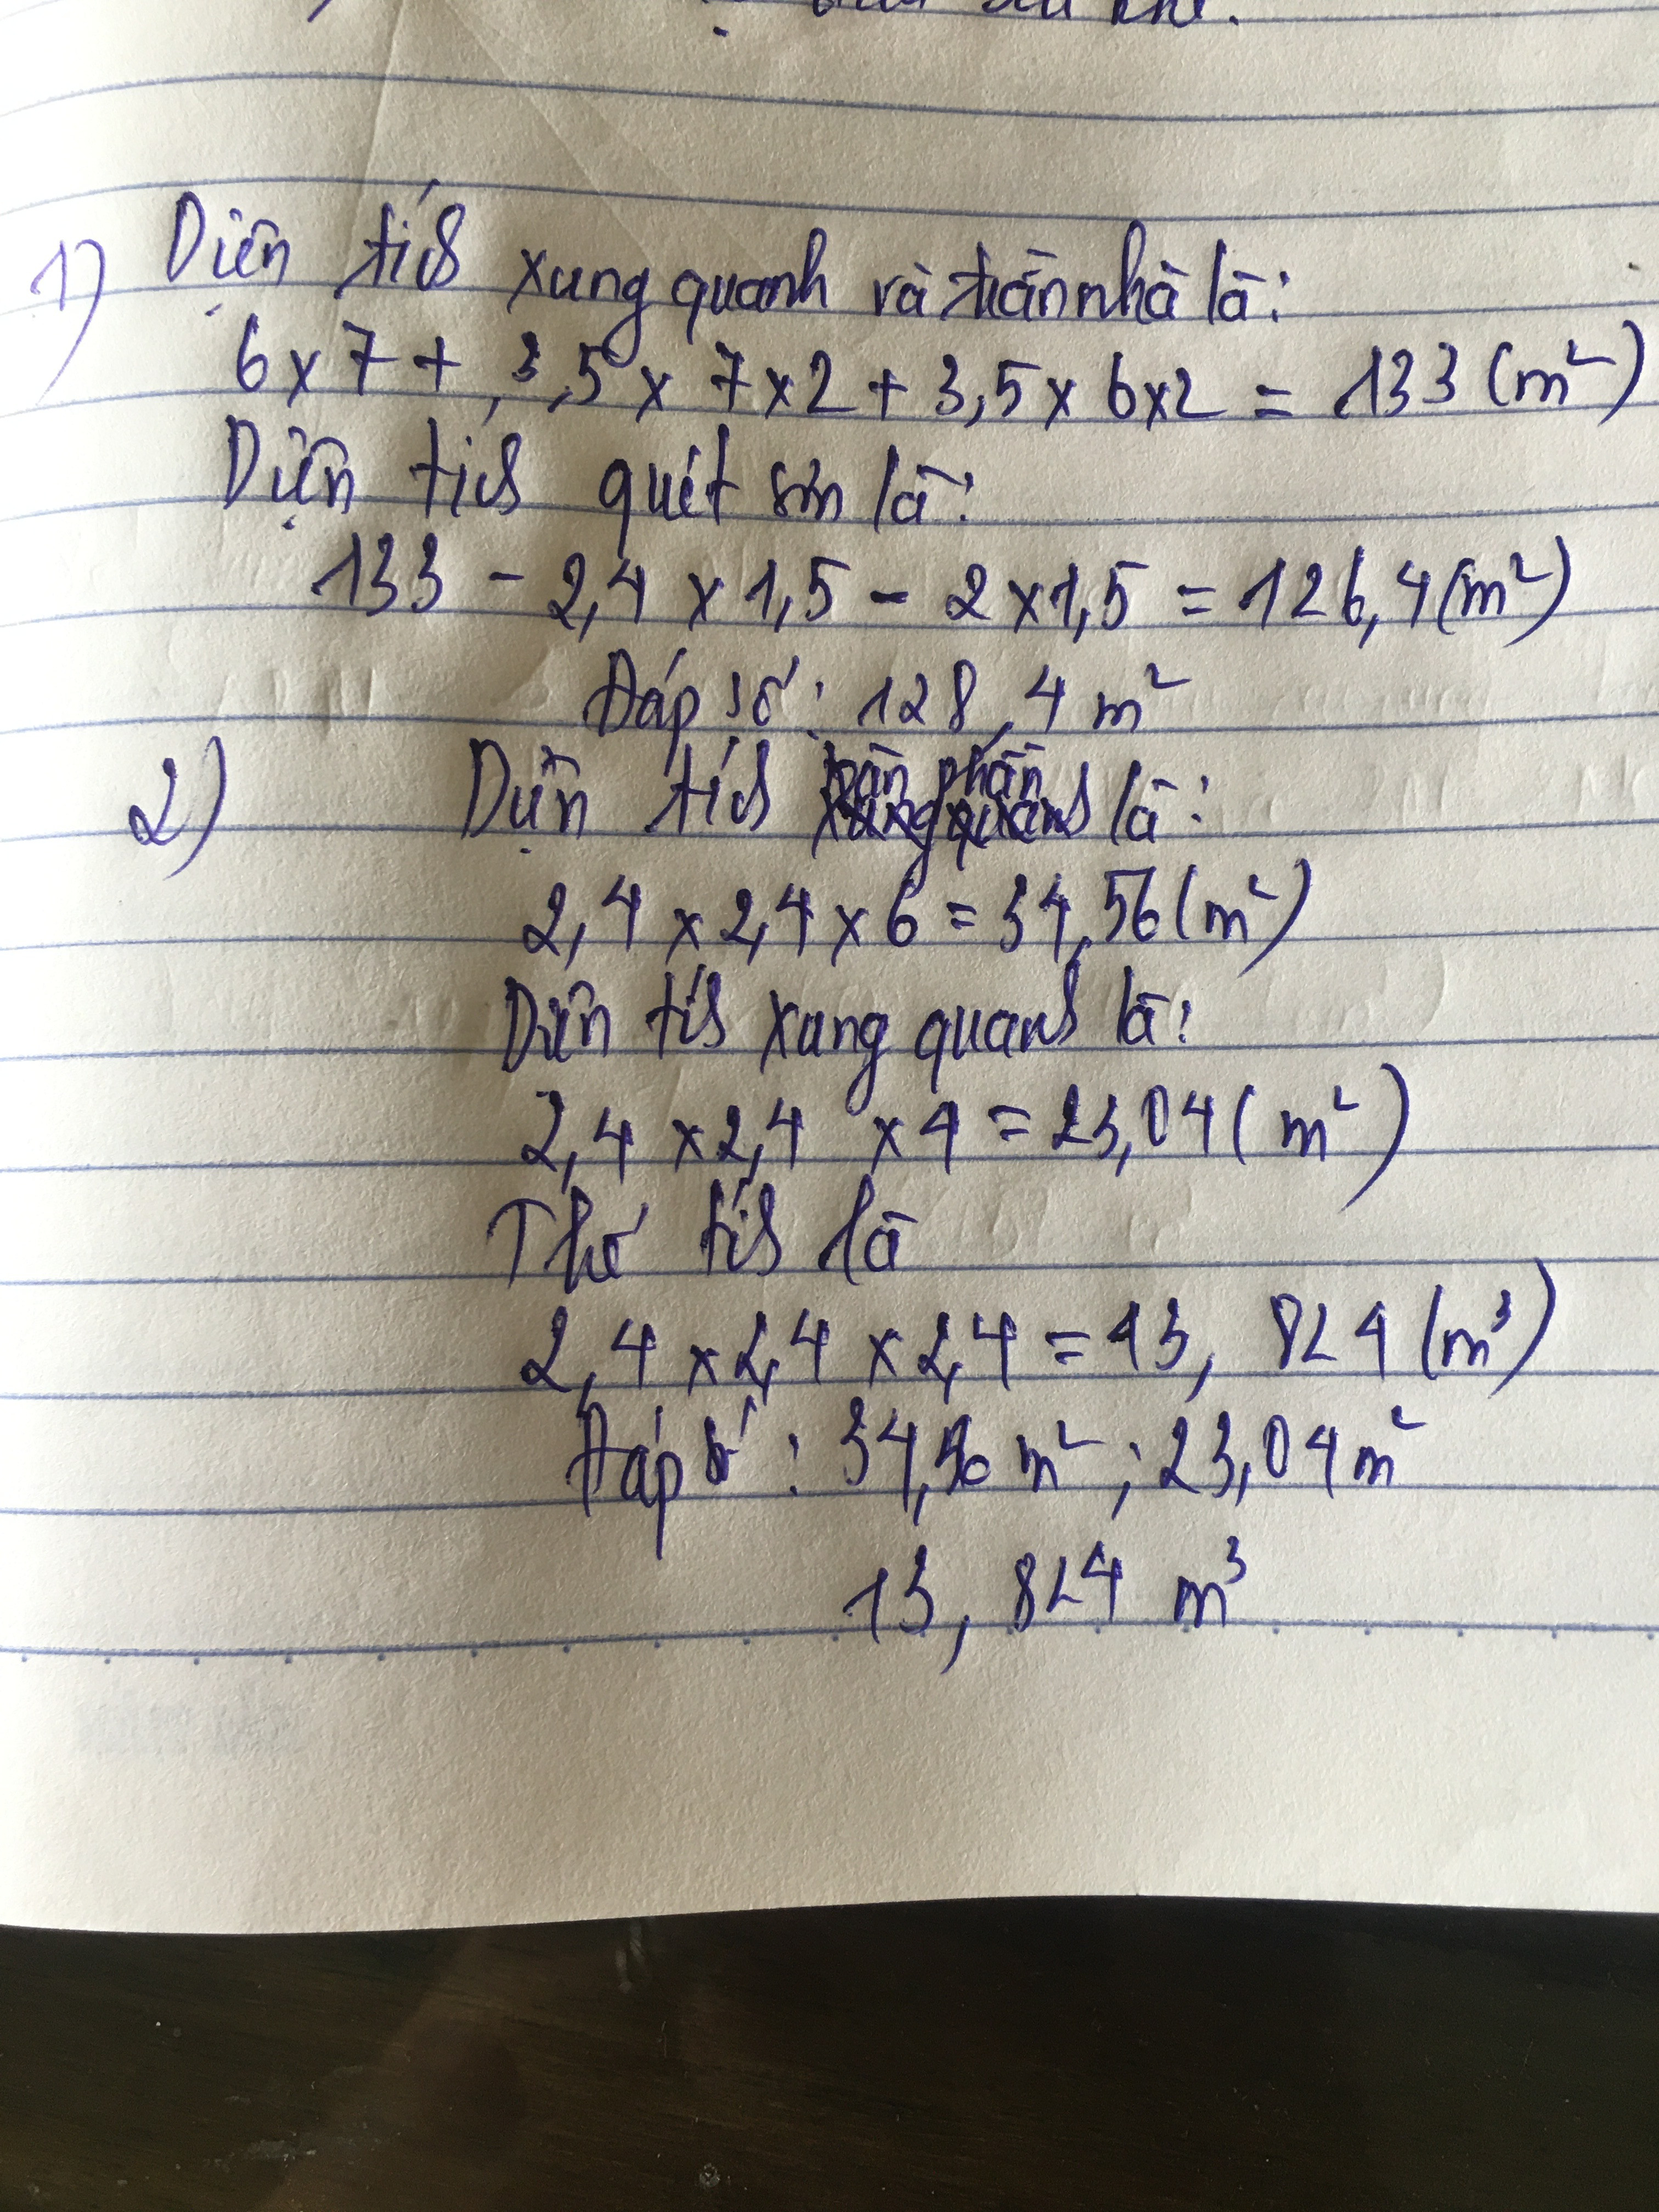 1) Diện tích xung quanh và trần nhà là:
6 x 7 + 3,5 x 7 x 2 + 3,5 x 6 x 2 = 133 (m²)
Diện tích quét sơn là:
133 - 2,4 x 1,5 - 2 x 1,5 = 126,4 (m²)
Đáp số: 128,4 m²
2) Diện tích toàn phần là:
2,4 x 2,4 x 6 = 34,56 (m²)
Diện tích xung quanh là:
2,4 x 2,4 x 4 = 23,04 (m²)
Thể tích là
2,4 x 2,4 x 2,4 = 13,824 (m³)
Đáp số: 34,56 m²; 23,04 m²
13,824 m³